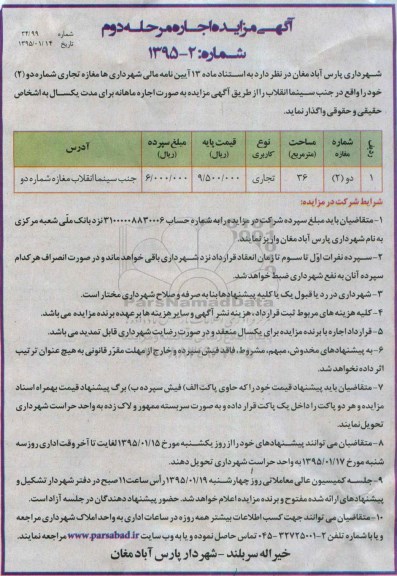 آگهی مزایده اجاره مرحله دوم
شماره: ۲-۱۳۹۵
شماره ۲۲/۹۹
تاریخ ۱۳۹۵/۰۱/۱۴
شهرداری پارس آباد مغان در نظر دارد به استناد ماده ۱۳ آیین نامه مالی شهرداری ها مغازه تجاری شماره دو (۲)
خود را واقع در جنب سینما انقلاب را از طریق آگهی مزایده به صورت اجاره ماهانه برای مدت یکسال به اشخاص
حقیقی و حقوقی واگذار نماید.
ردیف شماره مغازه مساحت (مترمربع) نوع کاربری قیمت پایه (ریال) مبلغ سپرده (ریال) آدرس
۱ دو (۲) ۳۶ تجاری ۹/۵۰۰/۰۰۰ ۶/۰۰۰/۰۰۰ جنب سینما انقلاب مغازه شماره دو
شرایط شرکت در مزایده:
۱- متقاضیان باید مبلغ سپرده شرکت در مزایده را به شماره حساب ۳۱۰۰۰۰۰۸۸۳۰۰۶ نزد بانک ملی شعبه مرکزی
به نام شهرداری پارس آباد مغان واریز نمایند.
۲- سپرده نفرات اول تا سوم تا زمان انعقاد قرارداد نزد شهرداری باقی خواهد ماند و در صورت انصراف هر کدام
سپرده آنان به نفع شهرداری ضبط خواهد شد.
۳- شهرداری در رد یا قبول یک یا کلیه پیشنهادها بنا به صرفه و صلاح شهرداری مختار است.
۴- کلیه هزینه های مربوط ثبت قرارداد، هزینه نشر آگهی و سایر هزینه ها بر عهده برنده مزایده می باشد.
۵- قرارداد اجاره با برنده مزایده برای یکسال منعقد و در صورت رضایت شهرداری قابل تمدید می باشد.
۶- به پیشنهادهای مخدوش، مبهم، مشروط، فاقد فیش سپرده و خارج از مهلت مقرر قانونی به هیچ عنوان ترتیب
اثر داده نخواهد شد.
۷- متقاضیان باید پیشنهاد قیمت خود را که حاوی پاکت الف) فیش سپرده ب) برگ پیشنهاد قیمت بهمراه اسناد
مزایده و هر دو پاکت را داخل یک پاکت قرار داده و به صورت سربسته ممهور و لاک زده به واحد حراست شهرداری
تحویل نمایند.
۸- متقاضیان می توانند پیشنهادهای خود را از روز یکشنبه مورخ ۱۳۹۵/۰۱/۱۵ لغایت تا آخر وقت اداری روز سه
شنبه مورخ ۱۳۹۵/۰۱/۱۷ به واحد حراست شهرداری تحویل دهند.
۹- جلسه کمیسیون عالی معاملاتی روز چهارشنبه ۱۳۹۵/۰۱/۱۹ رأس ساعت ۱۱ صبح در دفتر شهردار تشکیل و
پیشنهادهای ارائه شده مفتوح و برنده مزایده اعلام خواهد شد. حضور پیشنهاد دهندگان در جلسه آزاد است.
۱۰- متقاضیان می توانند جهت کسب اطلاعات بیشتر همه روزه در ساعات اداری به واحد املاک شهرداری مراجعه
و یا با شماره تلفن ۲-۳۲۷۲۵۰۰۱-۰۴۵ تماس حاصل نموده و یا به وب سایت www.parsabad.ir مراجعه نمایند.
خیراله سربلند - شهردار پارس آباد مغان
ParsNamadData